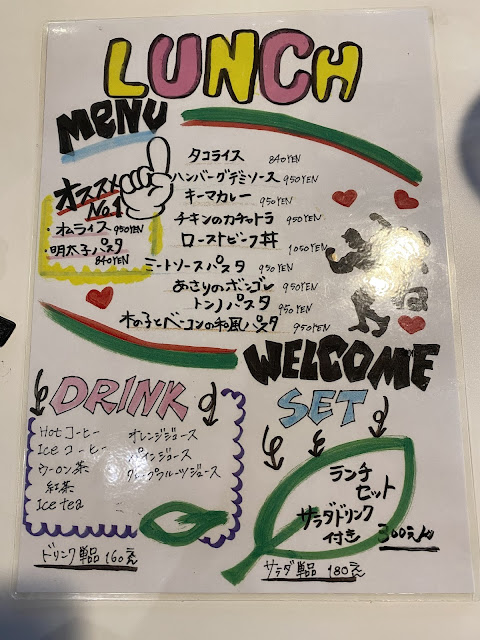 LUNCH
MENU
オススメ
No.1
・オムライス 950YEN
・明太子パスタ
840YEN
タコライス 840YEN
ハンバーグデミソース 950YEN
キーマカレー 950YEN
チキンのカチャトラ 950YEN
ローストビーフ丼 1050YEN
ミートソースパスタ 950YEN
あさりのボンゴレ 950YEN
トンノパスタ 950YEN
木の子とベーコンの和風パスタ 950YEN
WELCOME
DRINK
Hot コーヒー
Ice コーヒー
ウーロン茶
紅茶
Ice tea
オレンジジュース
パインジュース
グレープフルーツジュース
ドリンク単品 160えん
SET
ランチ
セット
サラダドリンク
付き 300えん
サラダ単品 180えん